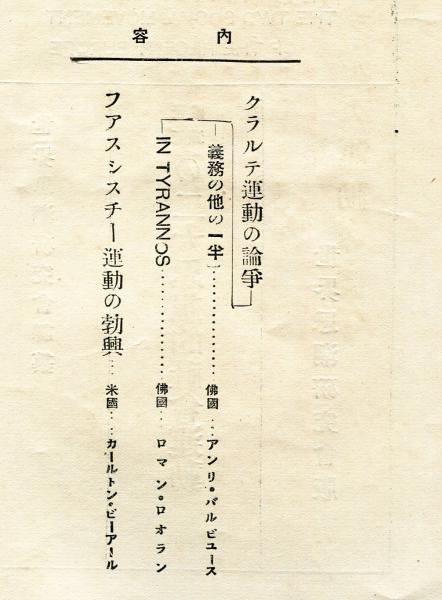 內容
クラルテ運動の論爭
義務の他の一半……………佛國…アンリ・バルビユース
IN TYRANNOS……………佛國 ロマン・ロオラン
フアスシスチー運動の勃興…米國…カールトン・ビーアル